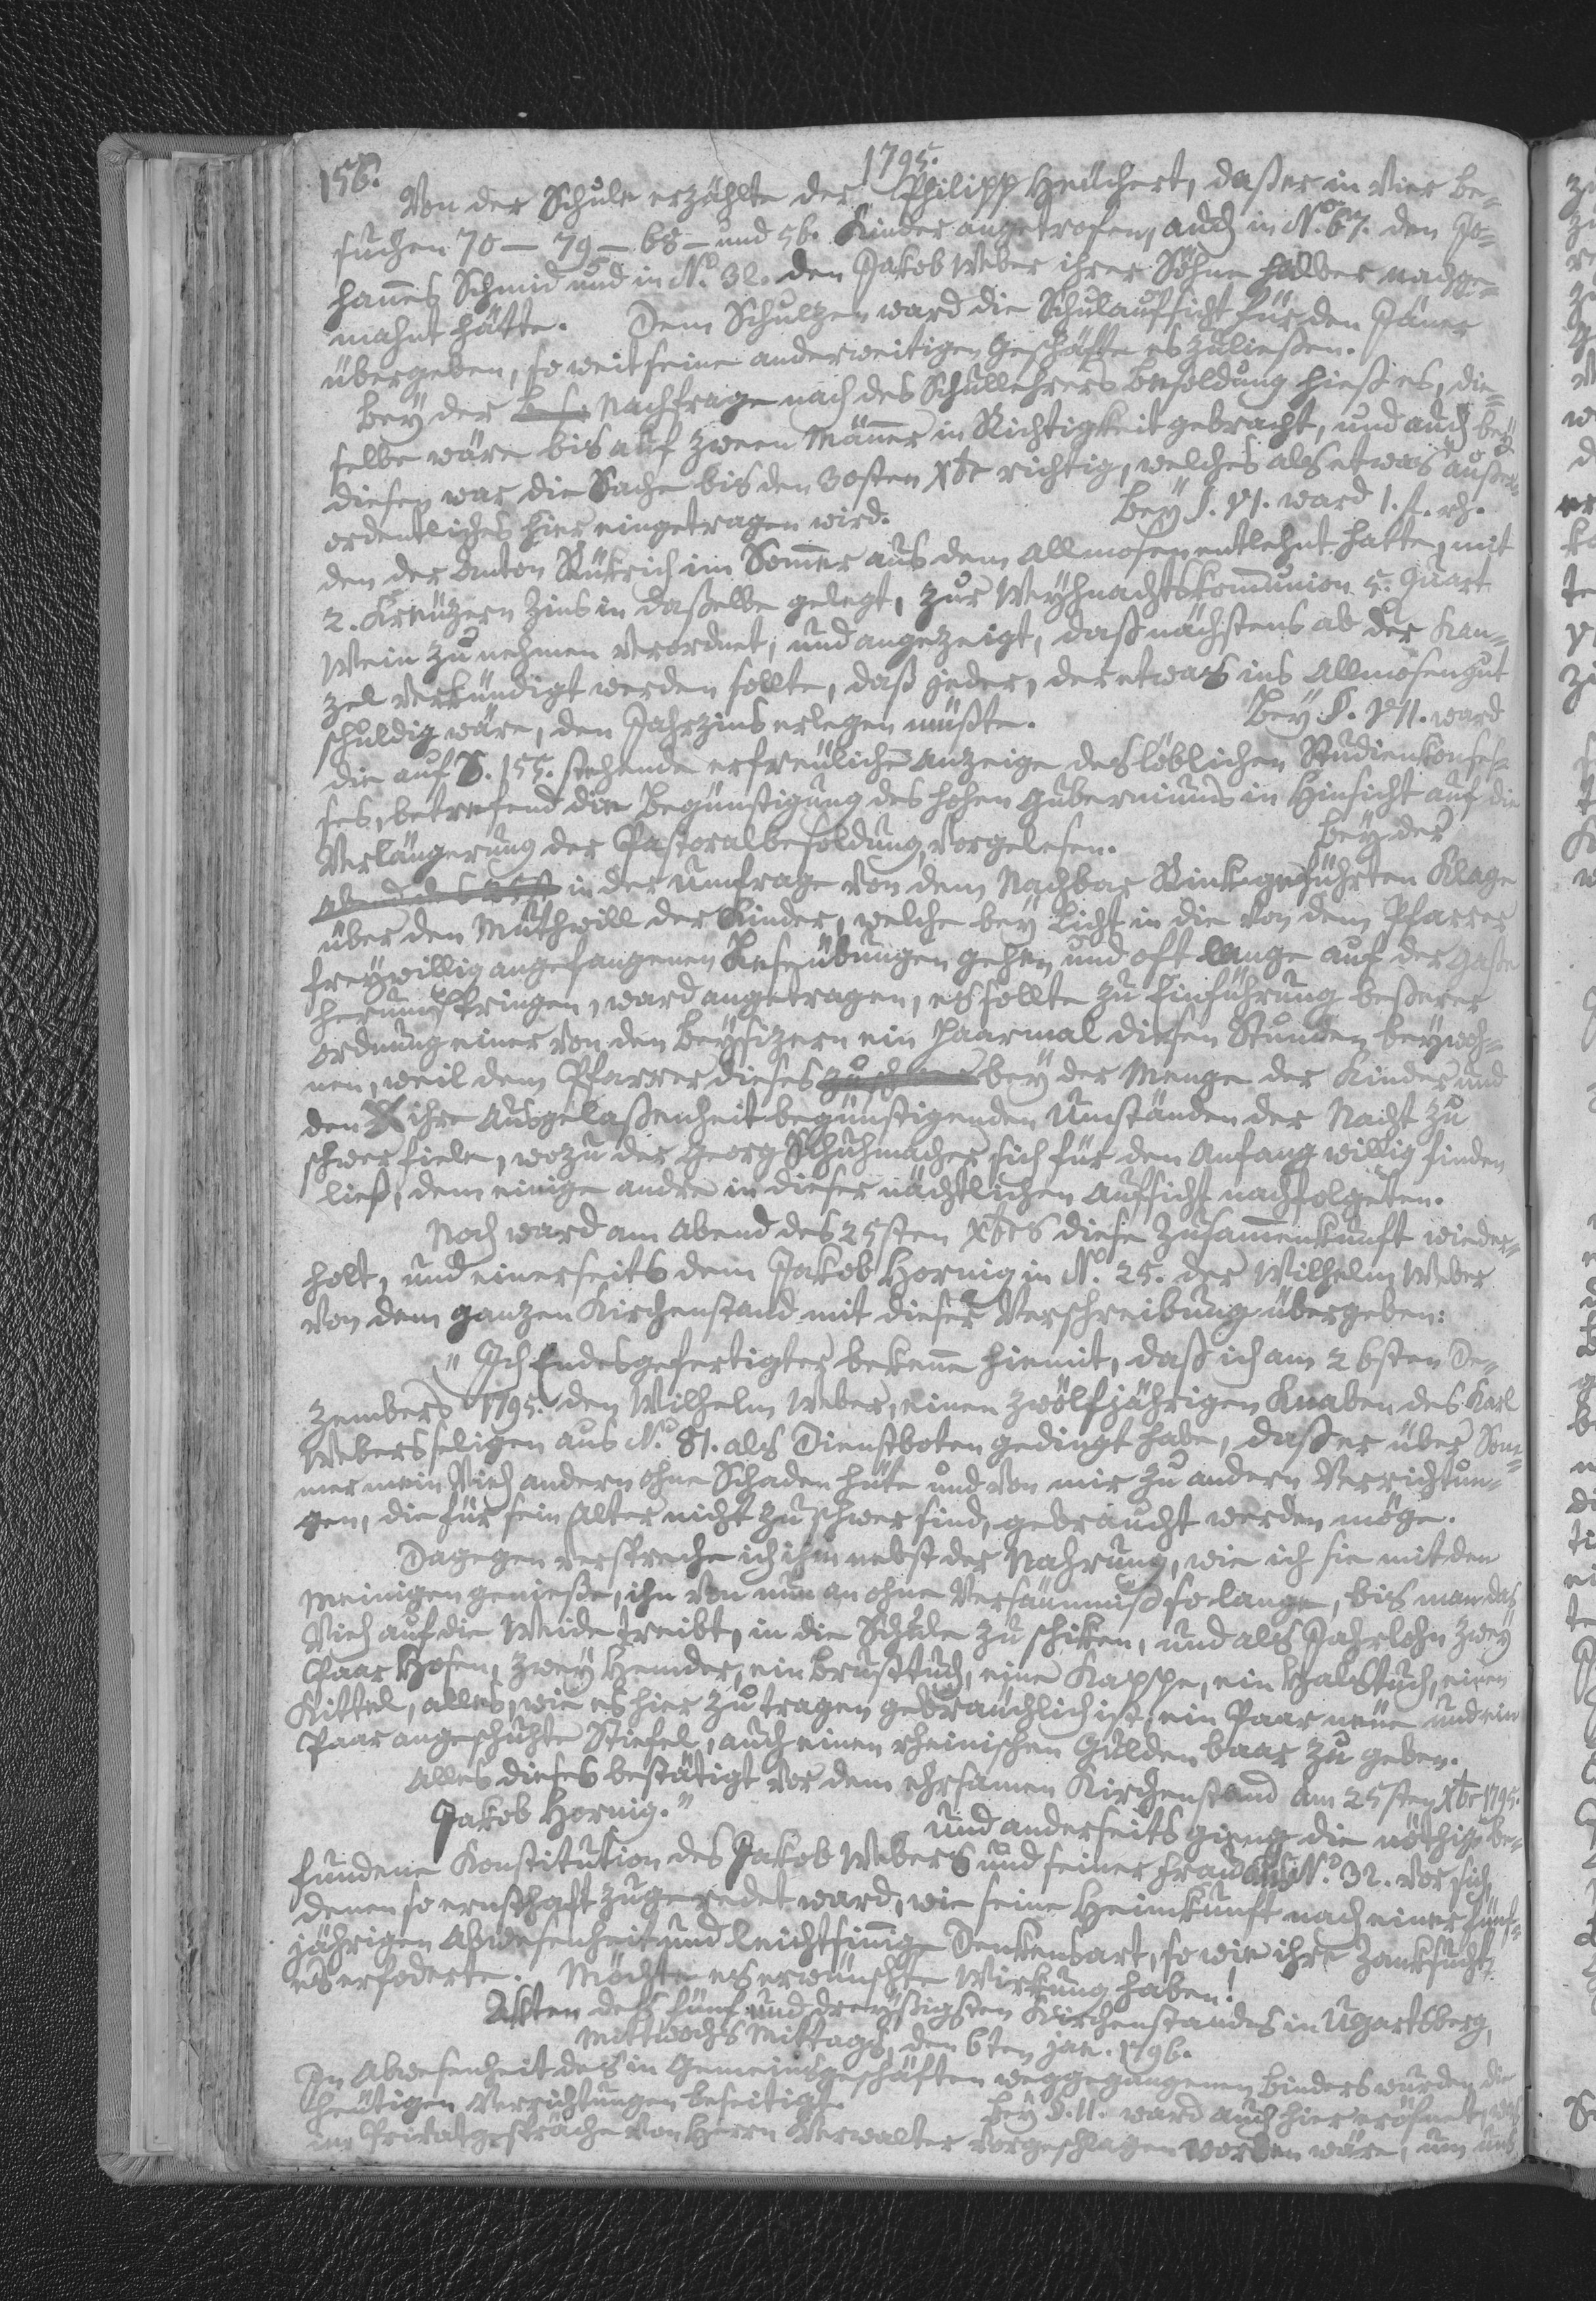 156.
1795.
Von der Schule erzählte der Philipp Heuchert, daß er in vier be-
suchen 70 — 79 — 68 — und 56. Kinder angetrofen, auch in N.o 67. den Jo-
hannes Schmid und in N.o 32. den Jakob Weber ihrer Söhne halber nachge-
mahnt hätte. Dem Schulzen ward die Schulaufsicht für den Jäner
übergeben, so weit seine anderweitigen Geschäfte es zuließen.
Bey der Nachfrage nach des Schullehrers Besoldung hieß es, die-
selbe wäre bis auf zween Männer in Richtigkeit gebracht, und auch bey
diesen war die Sache bis den 30sten Xbr richtig, welches als etwas außer-
ordentliches hier eingetragen wird. Bey §. VI. ward 1. f. rh.
den der Anton Rükrich im Sommer aus dem Allmosen entlehnt hatte, mit
2. Kreuzern Zins in daßelbe gelegt, zur Weyhnachtskommunion 5. Quart
Wein zu nehmen verordnet, und angezeigt, daß nächstens ab der Kan-
zel verkündigt werden sollte, daß jeder, der etwas ins Allmosengut
schuldig wäre, den Jahrzins erlegen müßte. Bey §. VII. ward
die auf S. 155. stehende erfreuliche Anzeige des löblichen Studienkonses-
ses, betrefend die Begünstigung des hohen Guberniums in Hinsicht auf die
Verlängerung der Pastoralbesoldung, vorgelesen. Bey der
Abend des 25st in der Umfrage von dem Nachbar Rink geführten Klage
über den Muthwill der Kinder, welche bey Licht in die von dem Pfarrer
freywillig angefangenen Leseübungen gehen und oft lange auf der Gaße
herumspringen, ward angetragen, es sollte zu Einführung beßerer
Ordnung einer von den Beysizern ein Paarmal diesen Stunden beywoh-
nen, weil dem Pfarrer dieses bey der Menge der Kinder und
den ihre Ausgelaßenheit begünstigenden Umständen der Nacht zu
schwer fiele, wozu der Georg Schuhmacher sich für den Anfang willig finden
ließ, dem einige andre in dieser nächtlichen Aufsicht nachfolgeten.
Noch ward am Abend des 25sten Xbrs diese Zusammenkunft wieder-
holt, und einerseits dem Jakob Hornig in N.o 25. der Wilhelm Weber
von dem ganzen Kirchenstand mit dieser Verschreibung übergeben:
"Ich Endesgefertigter bekenne hiemit, daß ich am 26sten De-
zembers 1795. den Wilhelm Weber, einen zwölfjährigen Knaben des Karl
Webers seligen aus N.o 81. als Dienstboten gedingt habe, daß er über Som-
mer mein Vieh andern ohne Schaden hüte und von mir zu andern Verrichtun-
gen, die für sein Alter nicht zu schwer sind, gebraucht werden möge.
Dagegen verspreche ich ihm nebst der Nahrung, wie ich sie mit den
Meinigen genieße, ihn von nun an ohne Versäumniß so lange, bis man das
Vieh auf die Weide treibt, in die Schule zu schiken, und als Jahrlohn zwey
Paar Hosen, zwey Hemder, ein Brusttuch, eine Kappe, ein Halstuch, einen
Kittel, alles, wie es hier zu tragen gebräuchlich ist, ein Paar neue und ein
Paar angeschuhte Stiefel, auch einen rheinischen Gulden baar zu geben.
Alles dieses bestätigt vor dem ehrsamen Kirchenstand am 25sten Xbr 1795.
Jakob Hornig." und anderseits gieng die nöthig be-
fundene Konstitution des Jakob Webers und seiner Frau aus N.o 32. vor sich,
denen so ernsthaft zugeredet ward, wie seine Heimkunft nach einer fünf-
jährigen Abwesenheit und leichtsinnige Denkensart, so wie ihre Zanksucht,
es erfoderte. Möchte es erwünschte Wirkung haben!
Akten des fünf und dreyßigsten Kirchenstandes in Ugartsberg,
Mittwochs Mittags, den 6ten Jan. 1796.
In Abwesenheit des in Gemeinsgeschäften weggegangenen Binders wurden die
heutigen Verrichtungen beseitigt. Bey §. II. ward auch hier eröfnet, was
im Privatgespräche von Herrn Verwalter vorgeschlagen worden wäre, um uns